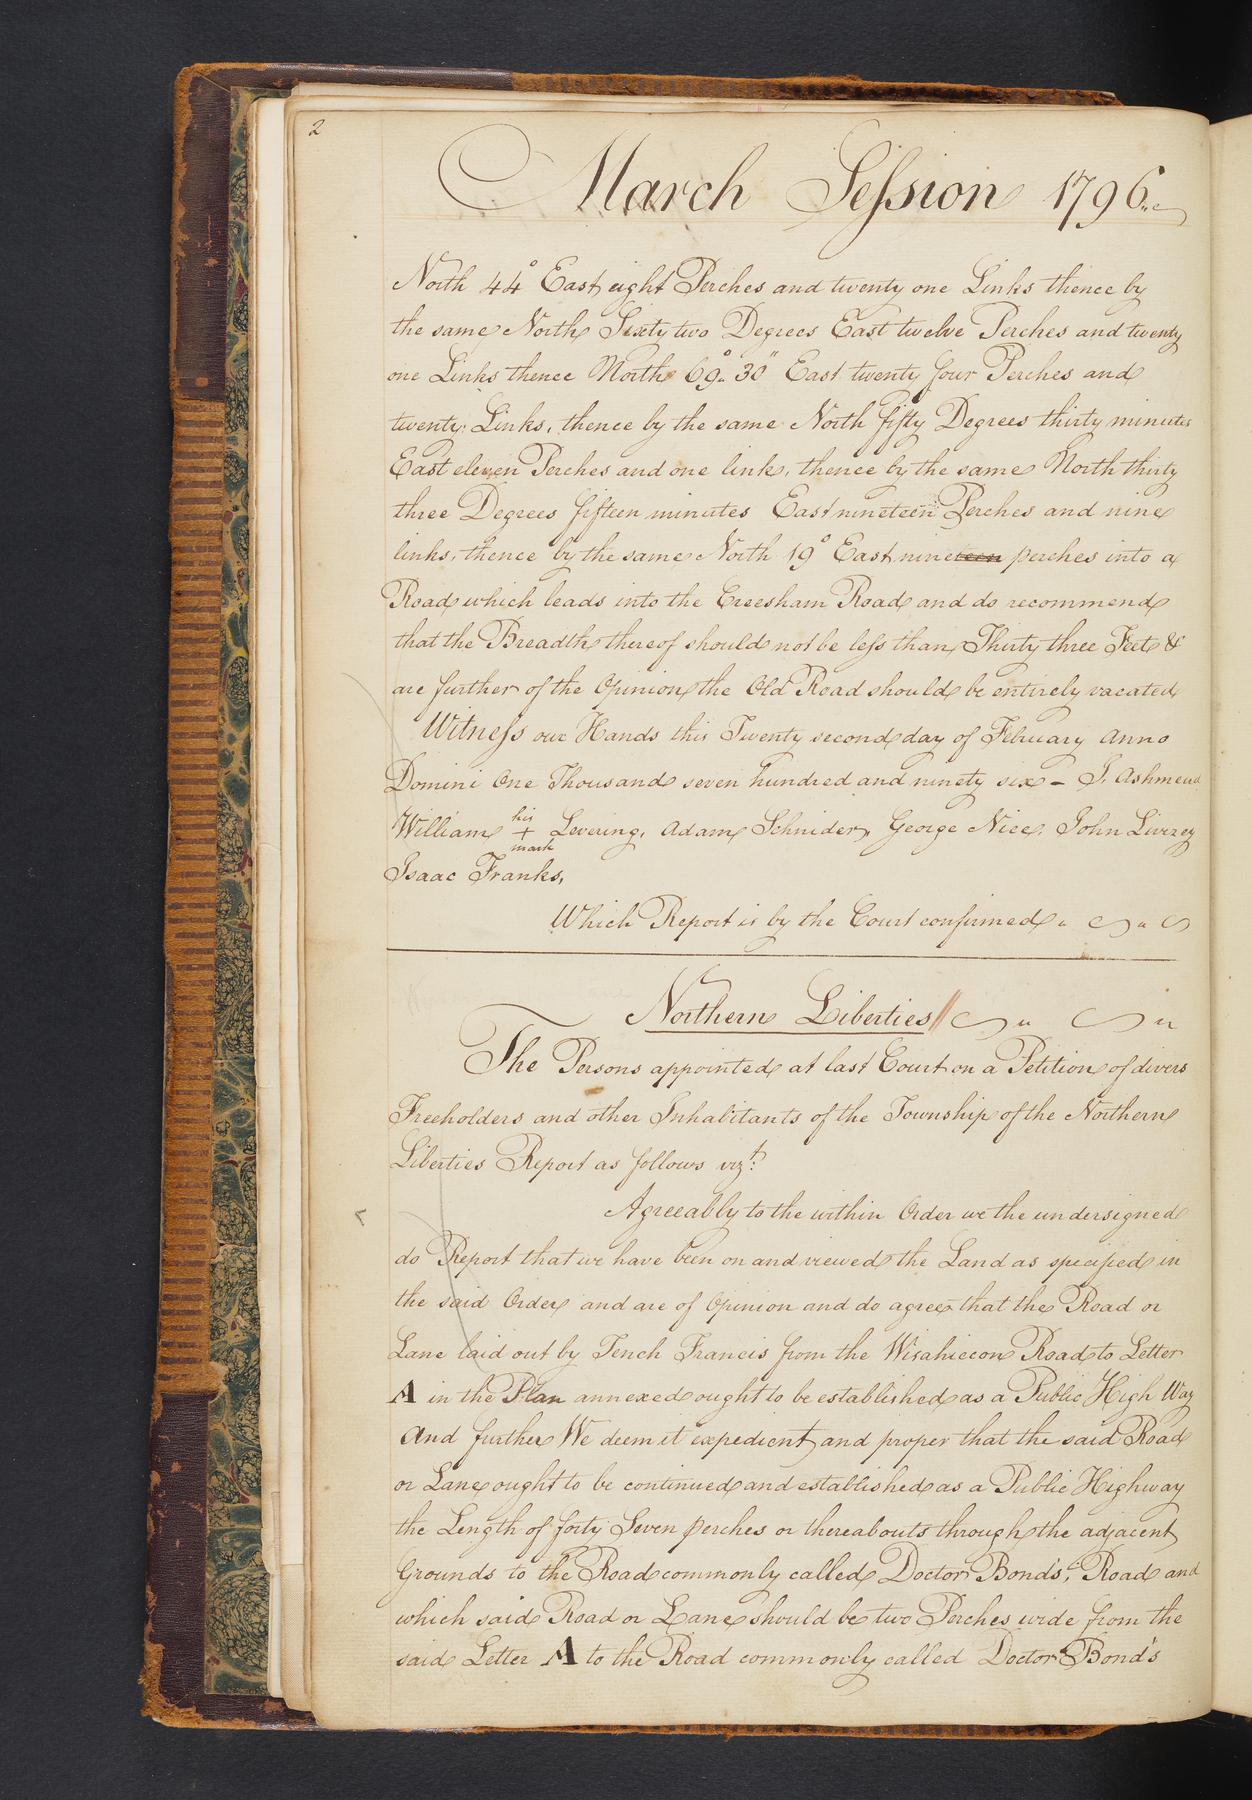 2
March Session 1796
North 44° East eight Perches and twenty one Links thence by
the same North Sixty two Degrees East twelve Perches and twenty
one Links thence North 69° 30" East twenty four Perches and
twenty Links, thence by the same North fifty Degrees thirty minutes
East eleven Perches and one link, thence by the same North thirty
three Degrees fifteen minutes East nineteen Perches and nine
links, thence by the same North 19° East nineteen perches into a
Road which leads into the Creesham Road and do recommend
that the Breadth thereof should not be less than Thirty three Feet &
are further of the Opinion the Old Road should be entirely vacated
Witness our Hands this Twenty second day of February Anno
Domini One Thousand seven hundred and ninety six - J. Ashmead
William his + mark Levering, Adam Schnider, George Nice, John Livezey
Isaac Franks,
Which Report is by the Court confirmed
Northern Liberties //
The Persons appointed at last Court on a Petition of divers
Freeholders and other Inhabitants of the Township of the Northern
Liberties Report as follows vizt:
Agreeably to the within Order we the undersigned
do Report that we have been on and viewed the Land as specified in
the said Order and are of Opinion and do agree that the Road or
Lane laid out by Tench Francis from the Wisahiccon Road to Letter
A in the Plan annexed ought to be established as a Public High Way
And further We deem it expedient and proper that the said Road
or Lane ought to be continued and established as a Public Highway
the Length of forty Seven perches or thereabouts through the adjacent
Grounds to the Road commonly called Doctor Bond's, Road and
which said Road or Lane should be two Perches wide from the
said Letter A to the Road commonly called Doctor Bond's